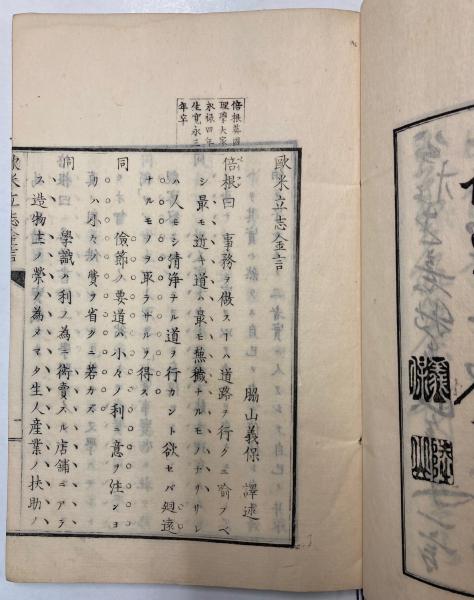 倍根英國
理學大家
永禄四年
生寛永三
年卒
歐米立志金言
脇山義保 譯述
倍根曰 事務ヲ做スーハ道路ヲ行クニ喩フベ
シ最モ近キ道ハ最モ蕪穢ナルモノナリサレ
ハ人モシ清浄ナル道ヲ行カント欲セバ廻遠
ナルモノヲ取ラサルヲ得ス
同 儉節ノ要道ハ小々ノ利ニ意ヲ注ンヨ
リハ小々ノ費ヲ省クニ若カズ
同 學識ハ利ノ為ニ衒賣スル店舗ニアラ
ス造物主ノ榮ノ為メマタ生人産業ノ扶助ノ
歐米立志金言
一